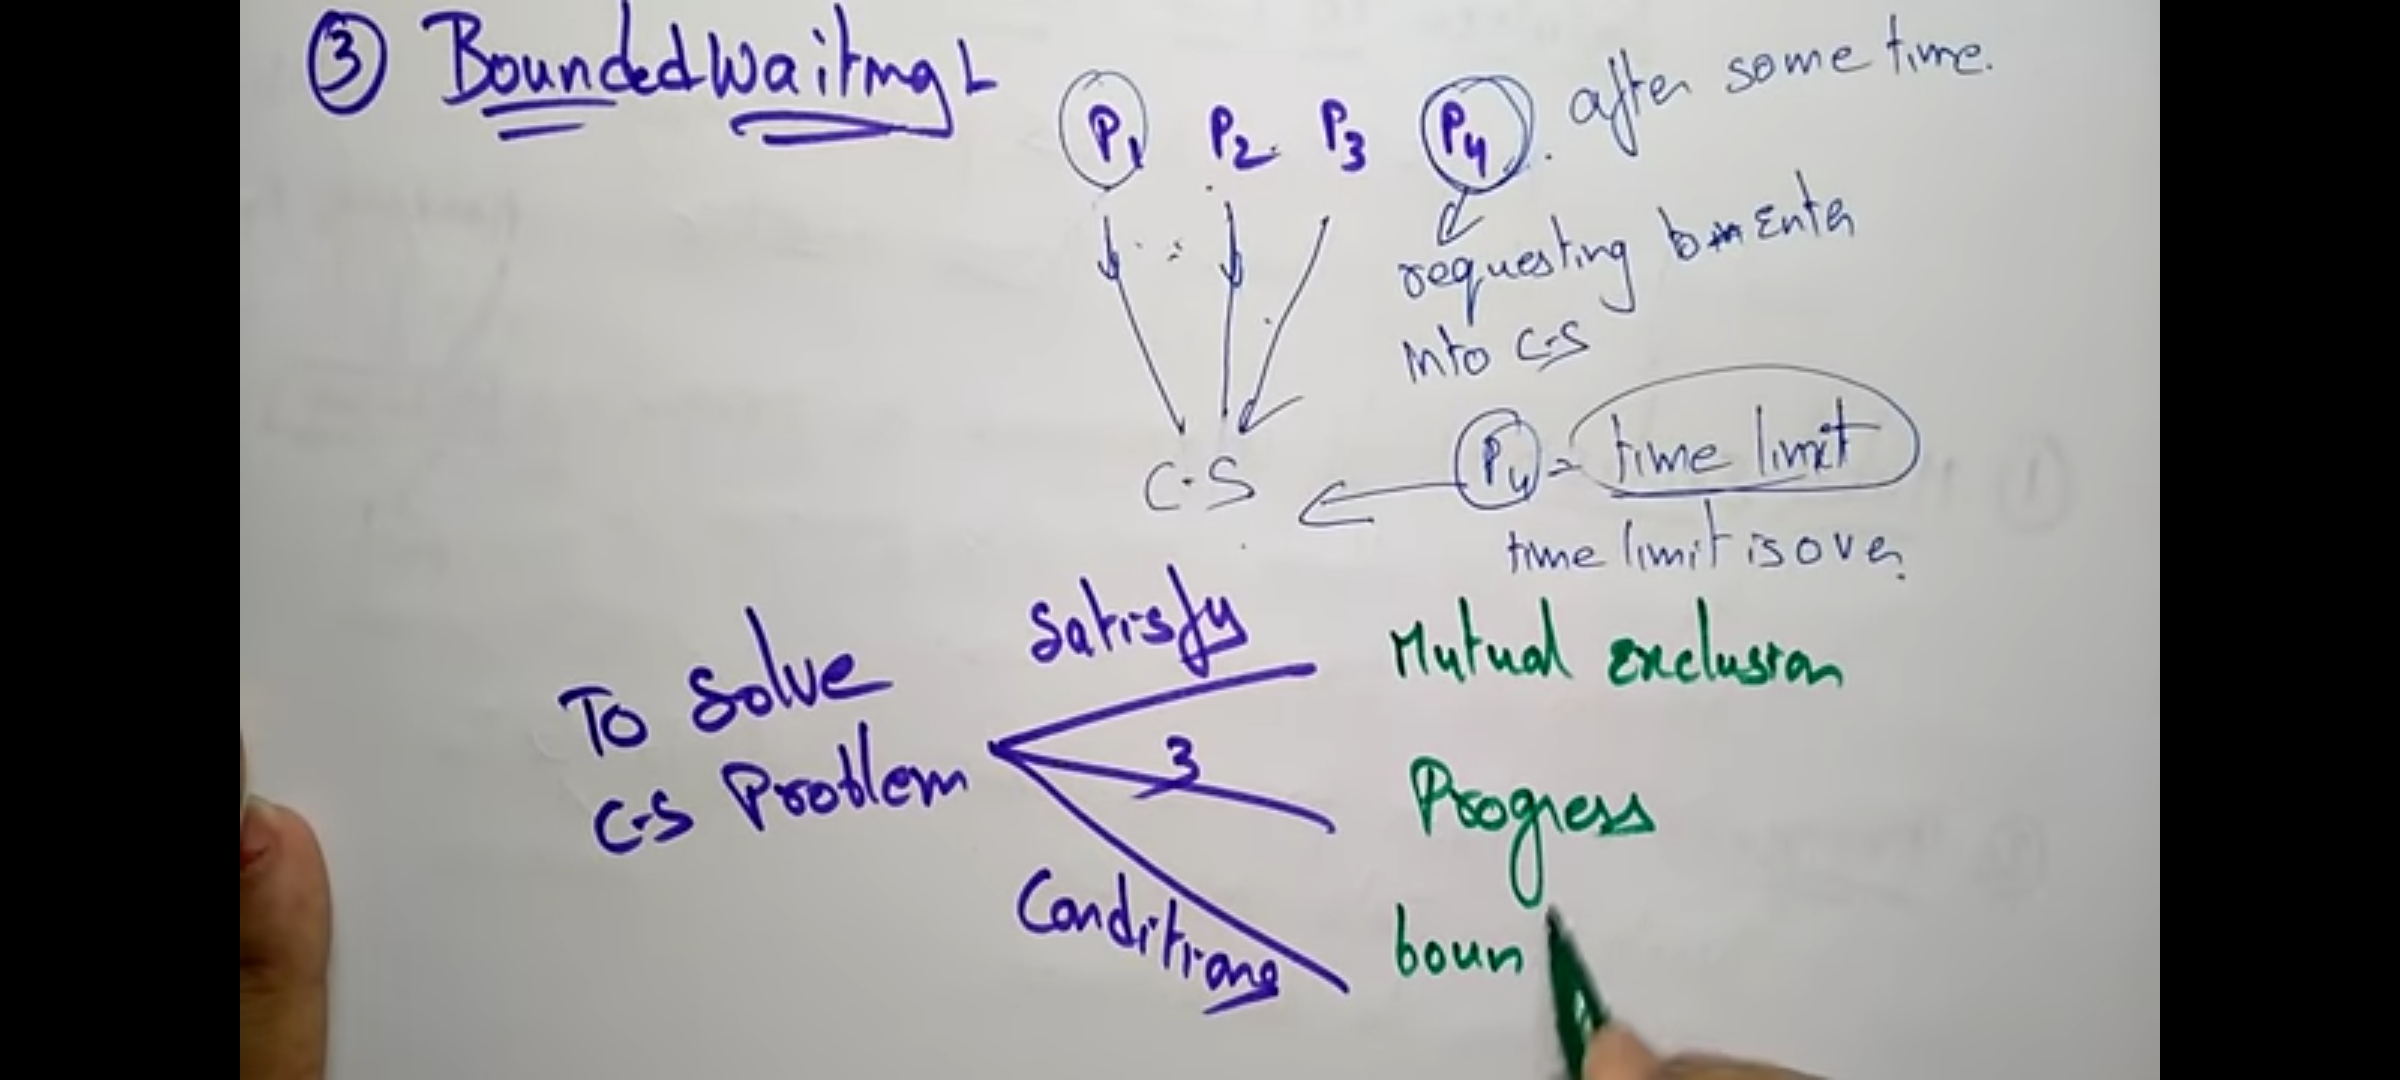 ③ Bounded Waiting
P1 P2 P3 P4 after some time.
requesting to Enter
into C-S
C-S
P4 = time limit
time limit is over.
To Solve
C-S Problem
Satisfy
3
Conditions
Mutual exclusion
Progress
boun